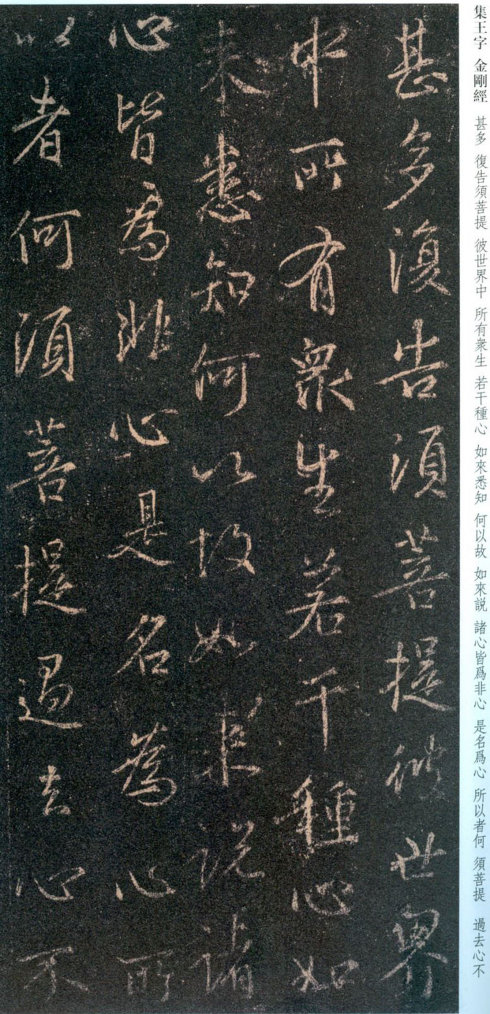 集王字 金剛經 甚多 復告須菩提 彼世界中 所有衆生 若干種心 如來悉知 何以故 如來説 諸心皆爲非心 是名爲心 所以者何 須菩提 過去心不
甚多復告須菩提彼世界
中所有衆生若干種心如
来悉知何以故如来説諸
心皆為非心是名為心所
以者何須菩提過去心不